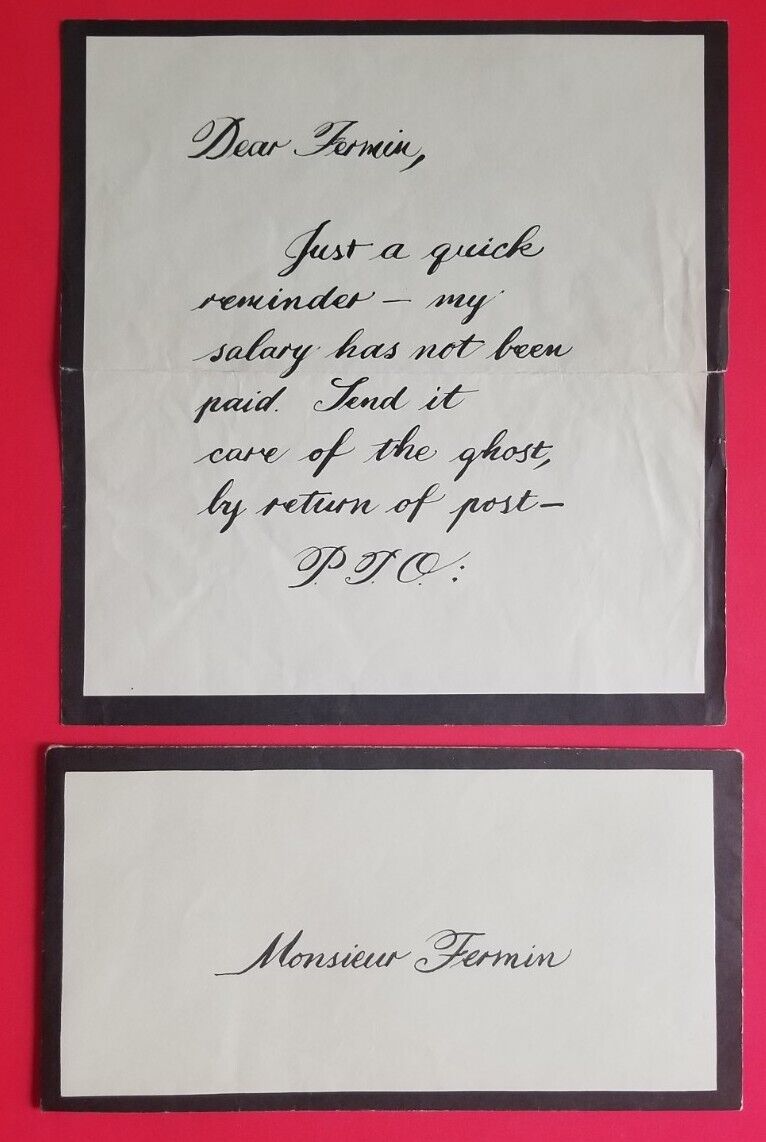 Dear Fermin,
Just a quick
reminder – my
salary has not been
paid. Send it
care of the ghost,
by return of post –
P.T.O.:
Monsieur Fermin